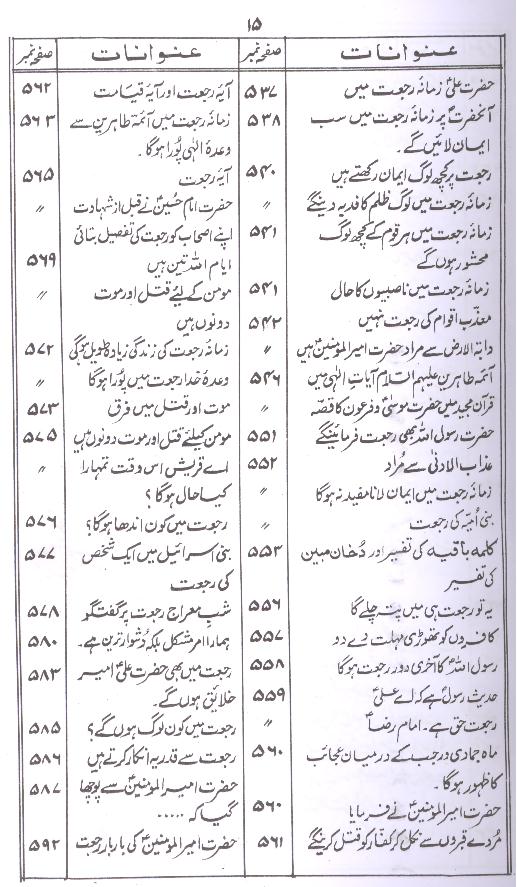 ۱۵
عنوانات صفحہ نمبر
حضرت علیؑ زمانہ رجعت میں ۵۳۷
آنحضرتؐ پر زمانہ رجعت میں سب ۵۳۸
ایمان لائیں گے۔
رجعت پر کچھ لوگ ایمان رکھتے ہیں ۵۴۰
زمانہ رجعت میں لوگ ظلم کا فدیہ دینگے 〃
زمانہ رجعت میں ہر قوم کے کچھ لوگ ۵۴۱
محشور ہوں گے
زمانہ رجعت میں ناصبیوں کا حال ۵۴۱
معذب اقوام کی رجعت نہیں ۵۴۲
دابۃ الارض سے مراد حضرت امیرالمومنینؑ ہیں 〃
آئمہ طاہرین علیہم السلام آیات الٰہی میں ۵۴۶
قرآن مجید میں حضرت موسیٰؑ و فرعون کا قصہ 〃
حضرت رسول اللہؐ بھی رجعت فرمائینگے ۵۵۱
عذاب الادنیٰ سے مراد ۵۵۲
زمانہ رجعت میں ایمان لانا مفید نہ ہوگا 〃
بنی امیہ کی رجعت 〃
کلمہ باقیہ کی تفسیر اور دخان مبین ۵۵۳
کی تفسیر
یہ تو رجعت ہی میں پتہ چلے گا ۵۵۶
کافروں کو تھوڑی مہلت دے دو ۵۵۷
رسول اللہؐ کا آخری دور رجعت ہوگا ۵۵۸
حدیث رسولؐ ہے کہ اے علیؑ ۵۵۹
رجعت حق ہے۔ امام رضاؑ 〃
ماہ جمادی و رجب کے درمیان عجائب ۵۶۰
کا ظہور ہوگا۔
حضرت امیرالمومنینؑ نے فرمایا ۵۶۰
مُردے قبروں سے نکل کر کفار کو قتل کرینگے ۵۶۱
عنوانات صفحہ نمبر
آیۂ رجعت اور آیۂ قیامت ۵۶۲
زمانہ رجعت میں آئمہ طاہرین سے ۵۶۳
وعدۂ الٰہی پُورا ہوگا۔
آیۂ رجعت ۵۶۵
حضرت امام حسینؑ نے قبل از شہادت 〃
اپنے اصحاب کو رجعت کی تفصیل بتائی
ایام اللہ تین ہیں ۵۶۹
مومن کے لیئے قتل اور موت 〃
دونوں ہیں
زمانۂ رجعت کی زندگی زیادہ طویل ہوگی ۵۷۲
وعدۂ خدا رجعت میں پُورا ہوگا 〃
موت اور قتل میں فرق ۵۷۳
مومن کیلئے قتل اور موت دونوں ہیں ۵۷۵
اے قریش اس وقت تمہارا 〃
کیا حال ہوگا؟
رجعت میں کون اندھا ہوگا؟ ۵۷۶
بنی اسرائیل میں ایک شخص ۵۷۷
کی رجعت
شب معراج رجعت پر گفتگو ۵۷۸
ہمارا امر مشکل بلکہ دُشوار ترین ہے۔ ۵۸۰
رجعت میں بھی حضرت علیؑ امیر ۵۸۳
خلائق ہوں گے۔
رجعت میں کون لوگ ہوں گے؟ ۵۸۵
رجعت سے قدریہ انکار کرتے ہیں ۵۸۶
حضرت امیرالمومنینؑ سے پوچھا ۵۸۷
گیا کہ .....
حضرت امیرالمومنینؑ کی بار بار رجعت ۵۹۲